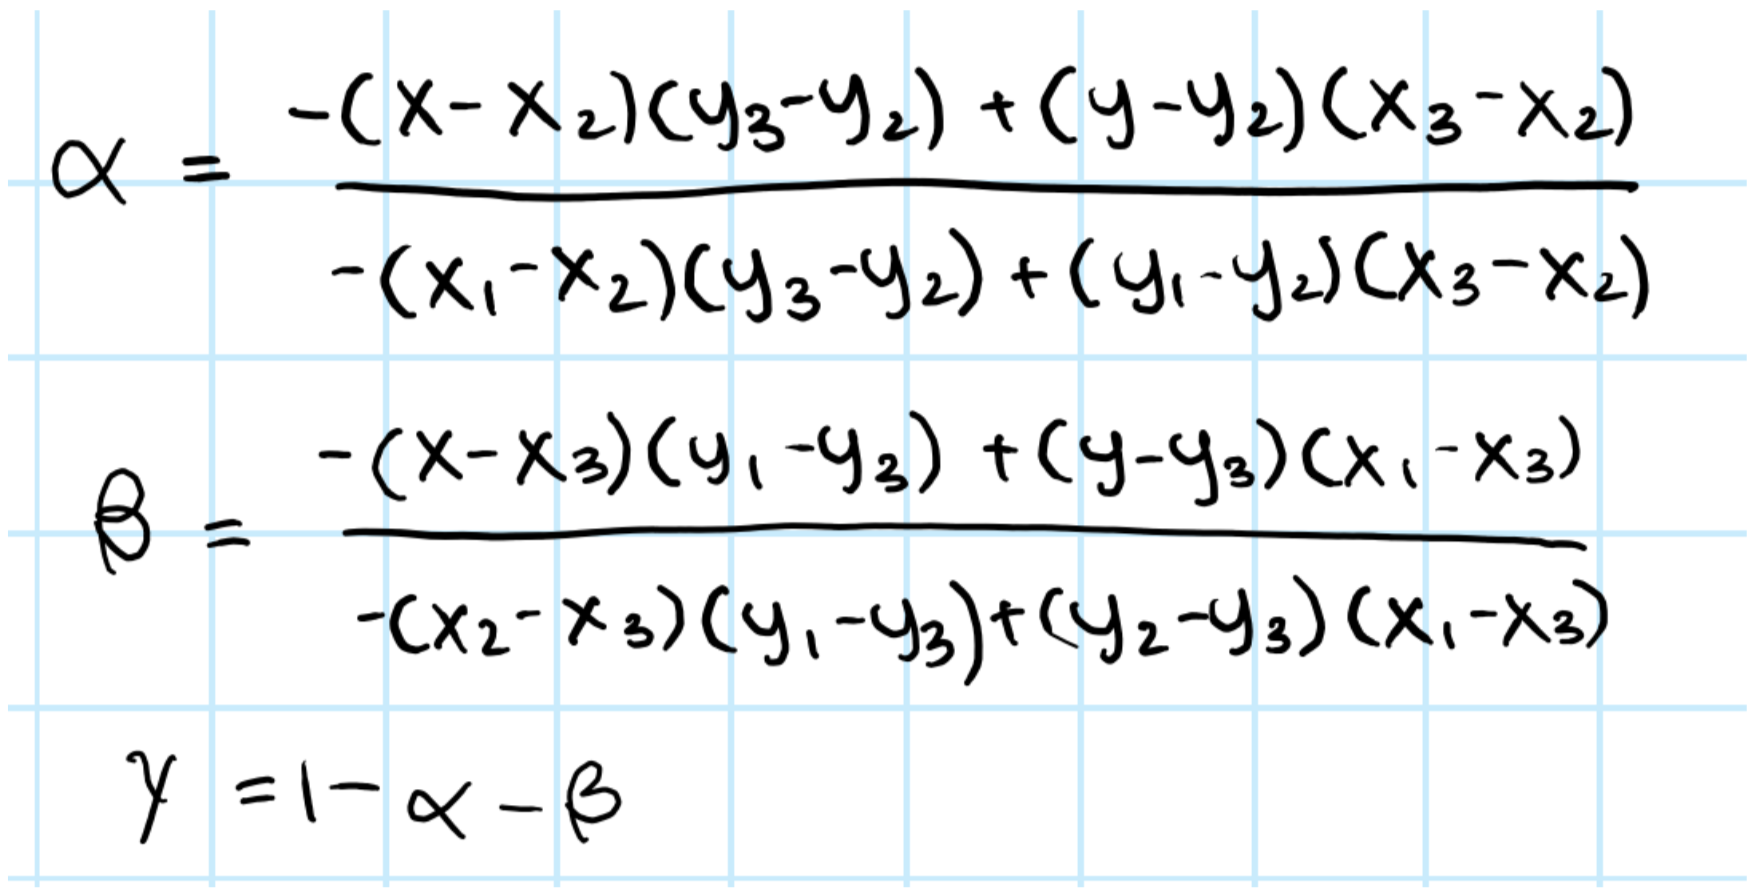 α = \frac{-(x-x_2)(y_3-y_2)+(y-y_2)(x_3-x_2)}{-(x_1-x_2)(y_3-y_2)+(y_1-y_2)(x_3-x_2)}
β = \frac{-(x-x_3)(y_1-y_3)+(y-y_3)(x_1-x_3)}{-(x_2-x_3)(y_1-y_3)+(y_2-y_3)(x_1-x_3)}
γ = 1-α-β